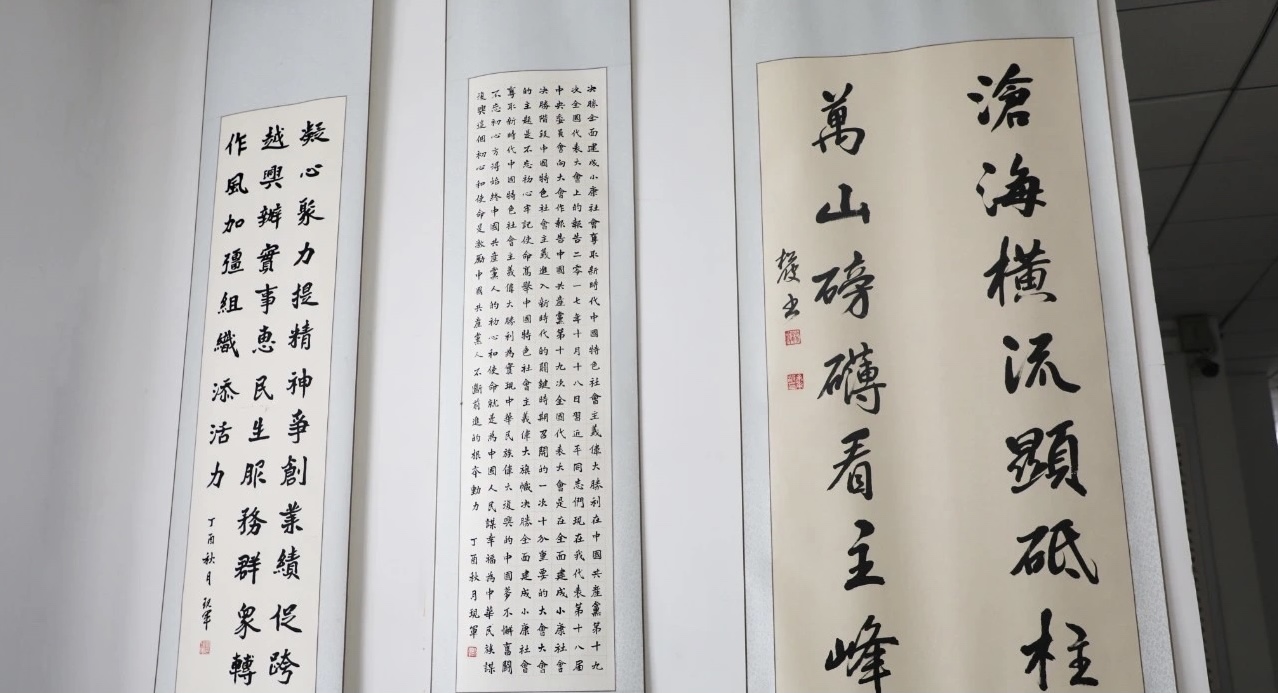 滄海橫流顯砥柱
萬山磅礡看主峰
書
决勝全面建成小康社會奪取新時代中國特色社會主義偉大勝利在中國共產黨第十九
次全國代表大會上的報告二零一七年十月十八日習近平同志們現在我代表第十八届
中央委員會向大會作報告中國共產黨第十九次全國代表大會是在全面建成小康社會
决勝階段中國特色社會主義進入新時代的關鍵時期召開的一次十分重要的大會大會
的主題是不忘初心牢記使命高舉中國特色社會主義偉大旗幟决勝全面建成小康社會
奪取新時代中國特色社會主義偉大勝利為實現中華民族偉大復興的中國夢不懈奮鬥
不忘初心方得始終中國共產黨人的初心和使命就是為中國人民謀幸福為中華民族謀
復興這個初心和使命是激勵中國共產黨人不斷前進的根本動力 丁酉秋月現軍
凝心聚力提精神爭創業績促跨
越興辦實事惠民生服務群眾轉
作風加彊組織添活力
丁酉秋月現軍